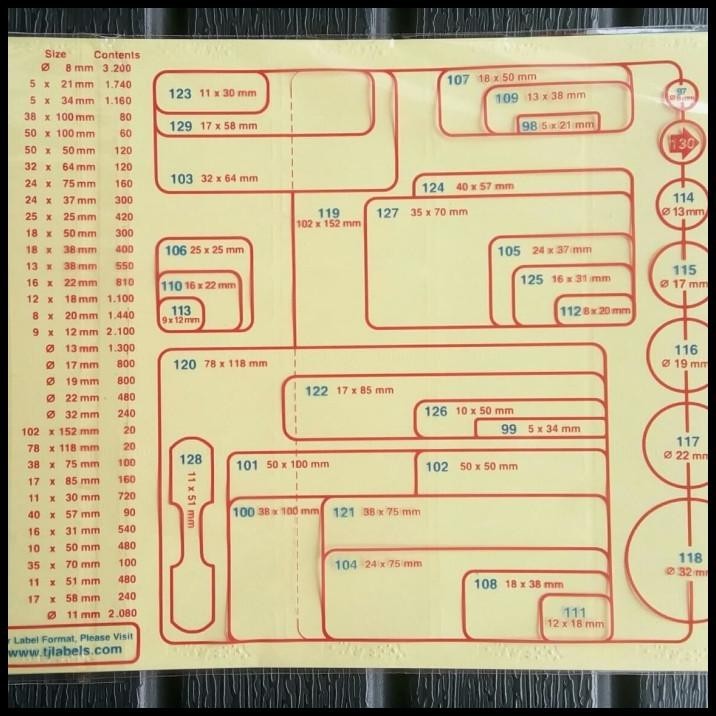 Size Contents
Ø 8 mm 3.200
5 x 21 mm 1.740
5 x 34 mm 1.160
38 x 100 mm 80
50 x 100 mm 60
50 x 50 mm 120
32 x 64 mm 120
24 x 75 mm 160
24 x 37 mm 300
25 x 25 mm 420
18 x 50 mm 300
18 x 38 mm 400
13 x 38 mm 550
16 x 22 mm 810
12 x 18 mm 1.100
8 x 20 mm 1.440
9 x 12 mm 2.100
Ø 13 mm 1.300
Ø 17 mm 800
Ø 19 mm 800
Ø 22 mm 480
Ø 32 mm 240
102 x 152 mm 20
78 x 118 mm 20
38 x 75 mm 100
17 x 85 mm 160
11 x 30 mm 720
40 x 57 mm 90
16 x 31 mm 540
10 x 50 mm 480
35 x 70 mm 100
11 x 51 mm 480
17 x 58 mm 240
Ø 11 mm 2.080
r Label Format, Please Visit
www.tjlabels.com
123 11 x 30 mm
129 17 x 58 mm
103 32 x 64 mm
107 18 x 50 mm
109 13 x 38 mm
98 5 x 21 mm
97
Ø 8 mm
130
124 40 x 57 mm
119
102 x 152 mm
127 35 x 70 mm
114
Ø 13 mm
106 25 x 25 mm
110 16 x 22 mm
113
9 x 12 mm
105 24 x 37 mm
125 16 x 31 mm
112 8 x 20 mm
115
Ø 17 mm
120 78 x 118 mm
122 17 x 85 mm
126 10 x 50 mm
99 5 x 34 mm
116
Ø 19 mm
128
11 x 51 mm
101 50 x 100 mm
102 50 x 50 mm
117
Ø 22 mm
100 38 x 100 mm
121 38 x 75 mm
104 24 x 75 mm
108 18 x 38 mm
111
12 x 18 mm
118
Ø 32 mm